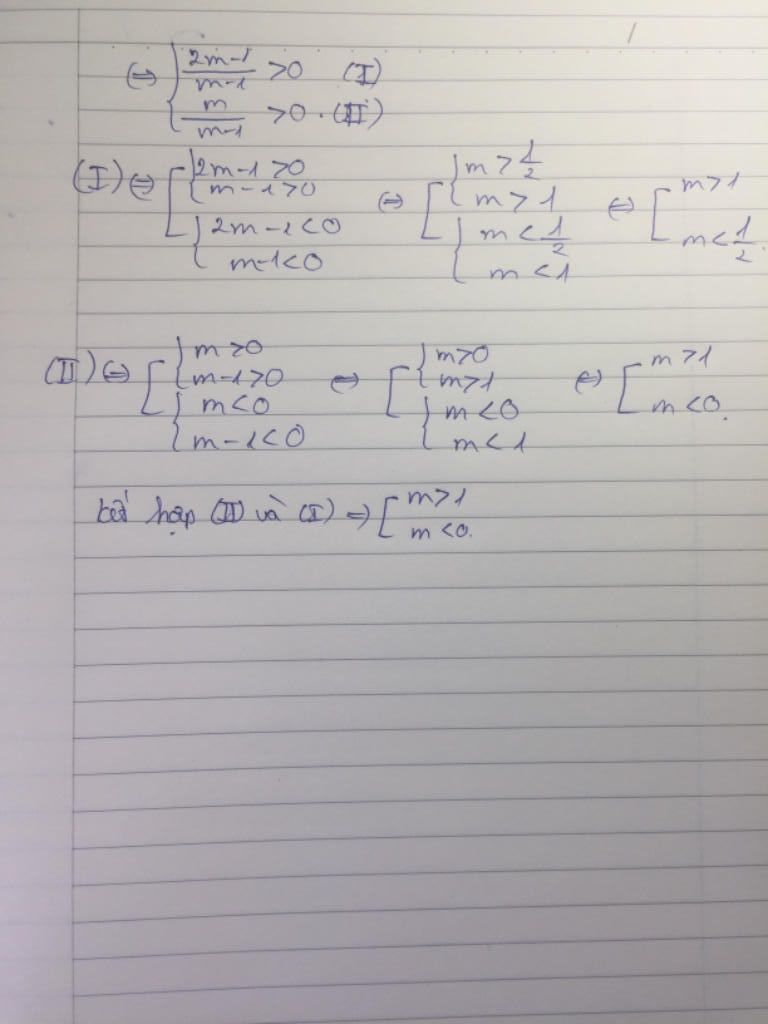 ⇔ { (2m-1)/(m-1) > 0 (I)
{ m/(m-1) > 0 . (II)
(I) ⇔ [ { 2m-1 > 0 ⇔ [ { m > 1/2 ⇔ [ m > 1
{ m-1 > 0 { m > 1
{ 2m-1 < 0 { m < 1/2 m < 1/2.
{ m-1 < 0 { m < 1
(II) ⇔ [ { m > 0 ⇔ [ { m > 0 ⇔ [ m > 1
{ m-1 > 0 { m > 1
{ m < 0 { m < 0 m < 0.
{ m-1 < 0 { m < 1
kết hợp (II) và (I) ⇒ [ m > 1
m < 0.